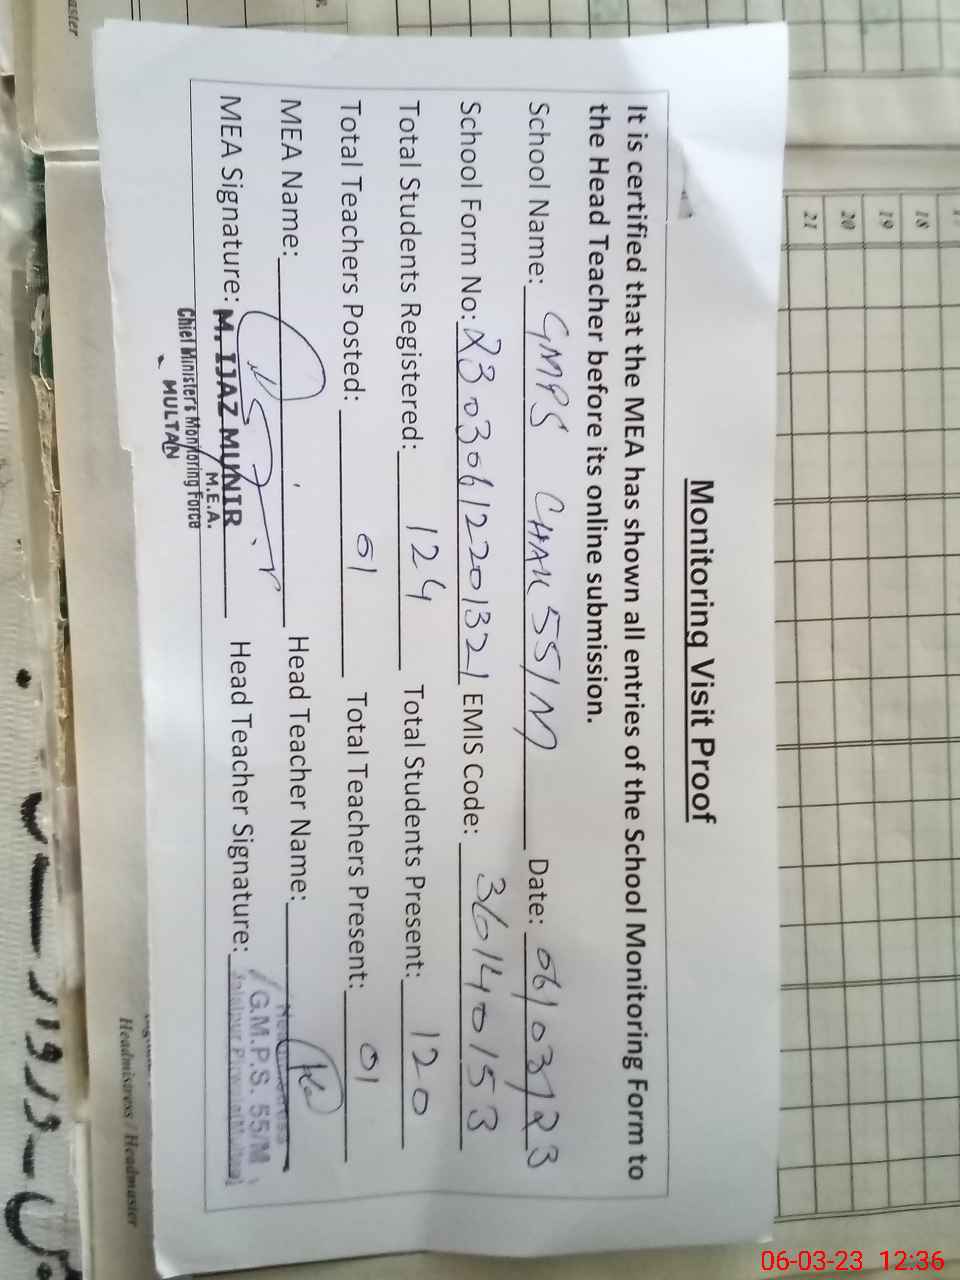 Monitoring Visit Proof
It is certified that the MEA has shown all entries of the School Monitoring Form to
the Head Teacher before its online submission.
School Name: GMPS CHAK 55/M Date: 06/03/23
School Form No: 23030612201321 EMIS Code: 36140153
Total Students Registered: 124 Total Students Present: 120
Total Teachers Posted: 01 Total Teachers Present: 01
MEA Name: Head Teacher Name:
MEA Signature: M. IJAZ MUNIR Head Teacher Signature:
M.E.A.
Chief Minister's Monitoring Force
MULTAN
Headmistress
G.M.P.S. 55/M
Jalalpur Pirwala (Multan)
18
19
20
21
Headmistress / Headmaster
06-03-23 12:36